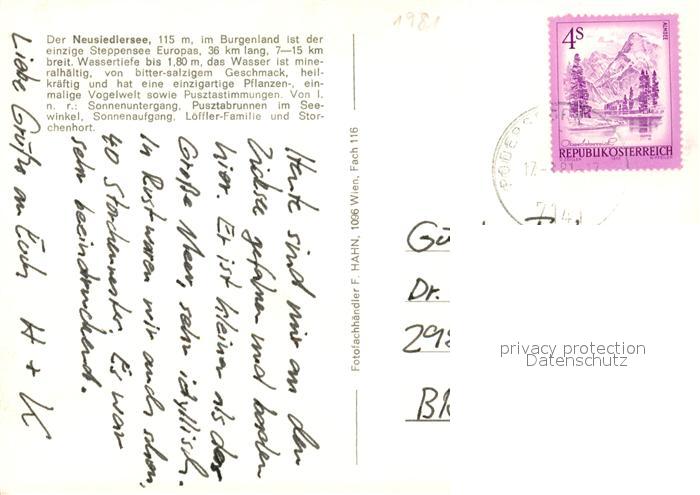 Der Neusiedlersee, 115 m, im Burgenland ist der
einzige Steppensee Europas, 36 km lang, 7—15 km
breit. Wassertiefe bis 1,80 m, das Wasser ist mine-
ralhältig, von bitter-salzigem Geschmack, heil-
kräftig und hat eine einzigartige Pflanzen-, ein-
malige Vogelwelt sowie Pusztastimmungen. Von l.
n. r.: Sonnenuntergang, Pusztabrunnen im See-
winkel, Sonnenaufgang, Löffler-Familie und Stor-
chenhort.
Heute sind wir an den
gefahren und baden
hier. Er ist kleiner als das
Große Meer, sehr idyllisch.
In Rust waren wir auch schon,
40 Storchennester. Es war
sehr beeindruckend.
Liebe Grüße an Euch H + K
Fotofachhändler F. HAHN, 1096 Wien, Fach 116
1981
4S
ALMSEE
Oberösterreich
REPUBLIK ÖSTERREICH
7141
Dr.
privacy protection
Datenschutz